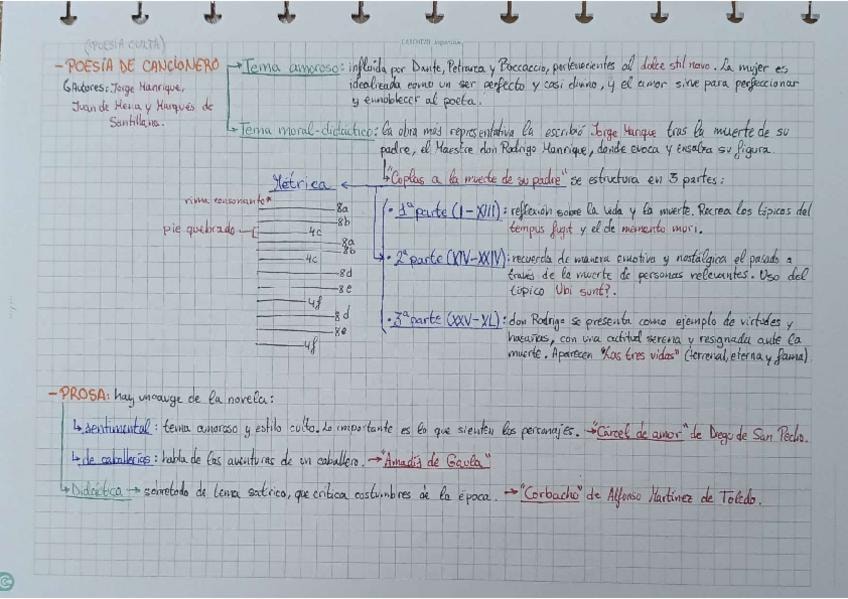 (POESÍA CULTA)
- POESÍA DE CANCIONERO
Autores: Jorge Manrique,
Juan de Mena y Marqués de
Santillana.
Tema amoroso: influida por Dante, Petrarca y Boccaccio, pertenecientes al dolce stil novo. La mujer es
idealizada como un ser perfecto y casi divino, y el amor sirve para perfeccionar
y ennoblecer al poeta.
Tema moral-didáctico: la obra más representativa la escribió Jorge Manrique tras la muerte de su
padre, el Maestre don Rodrigo Manrique, donde evoca y ensalza su figura.
"Coplas a la muerte de su padre" se estructura en 3 partes:
Métrica
rima consonante*
pie quebrado
8a
8b
4c
8a
8b
4c
8d
8e
4f
8d
8e
4f
· 1ª parte (I-XIII): reflexión sobre la vida y la muerte. Recrea los tópicos del
tempus fugit y el de memento mori.
· 2ª parte (XIV-XXIV): recuerda de manera emotiva y nostálgica el pasado a
través de la muerte de personas relevantes. Uso del
tópico Ubi sunt?.
· 3ª parte (XXV-XL): don Rodrigo se presenta como ejemplo de virtudes y
hazañas, con una actitud serena y resignada ante la
muerte. Aparecen "Las tres vidas" (terrenal, eterna y fama)
- PROSA: hay un auge de la novela:
sentimental: tema amoroso y estilo culto. Lo importante es lo que sienten los personajes. → "Cárcel de amor" de Diego de San Pedro.
de caballerías: habla de las aventuras de un caballero. → "Amadís de Gaula"
Didáctica → sobretodo de tema satírico, que critica costumbres de la época. → "Corbacho" de Alfonso Martínez de Toledo.